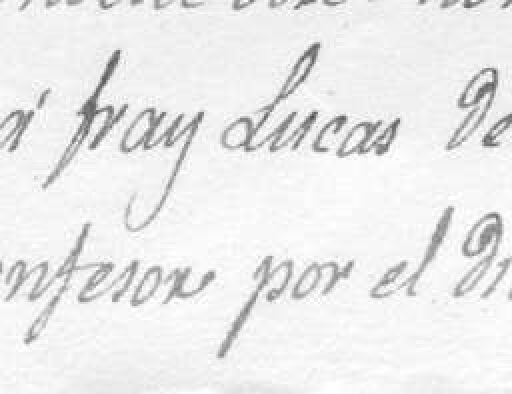 á fray Lucas de
onfesor por el